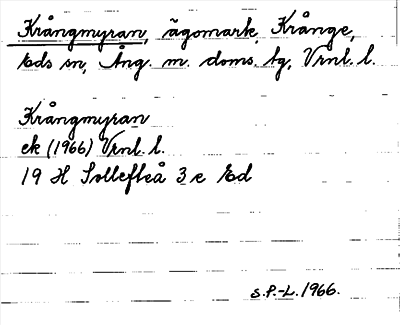 Krångmyran, ägomark, Krånge,
Eds sn, Ång. m. doms. tg, Vrnl. l.
Krångmyran
ek (1966) Vrnl. l.
19 H Sollefteå 3 e Ed
S.P.-L. 1966.